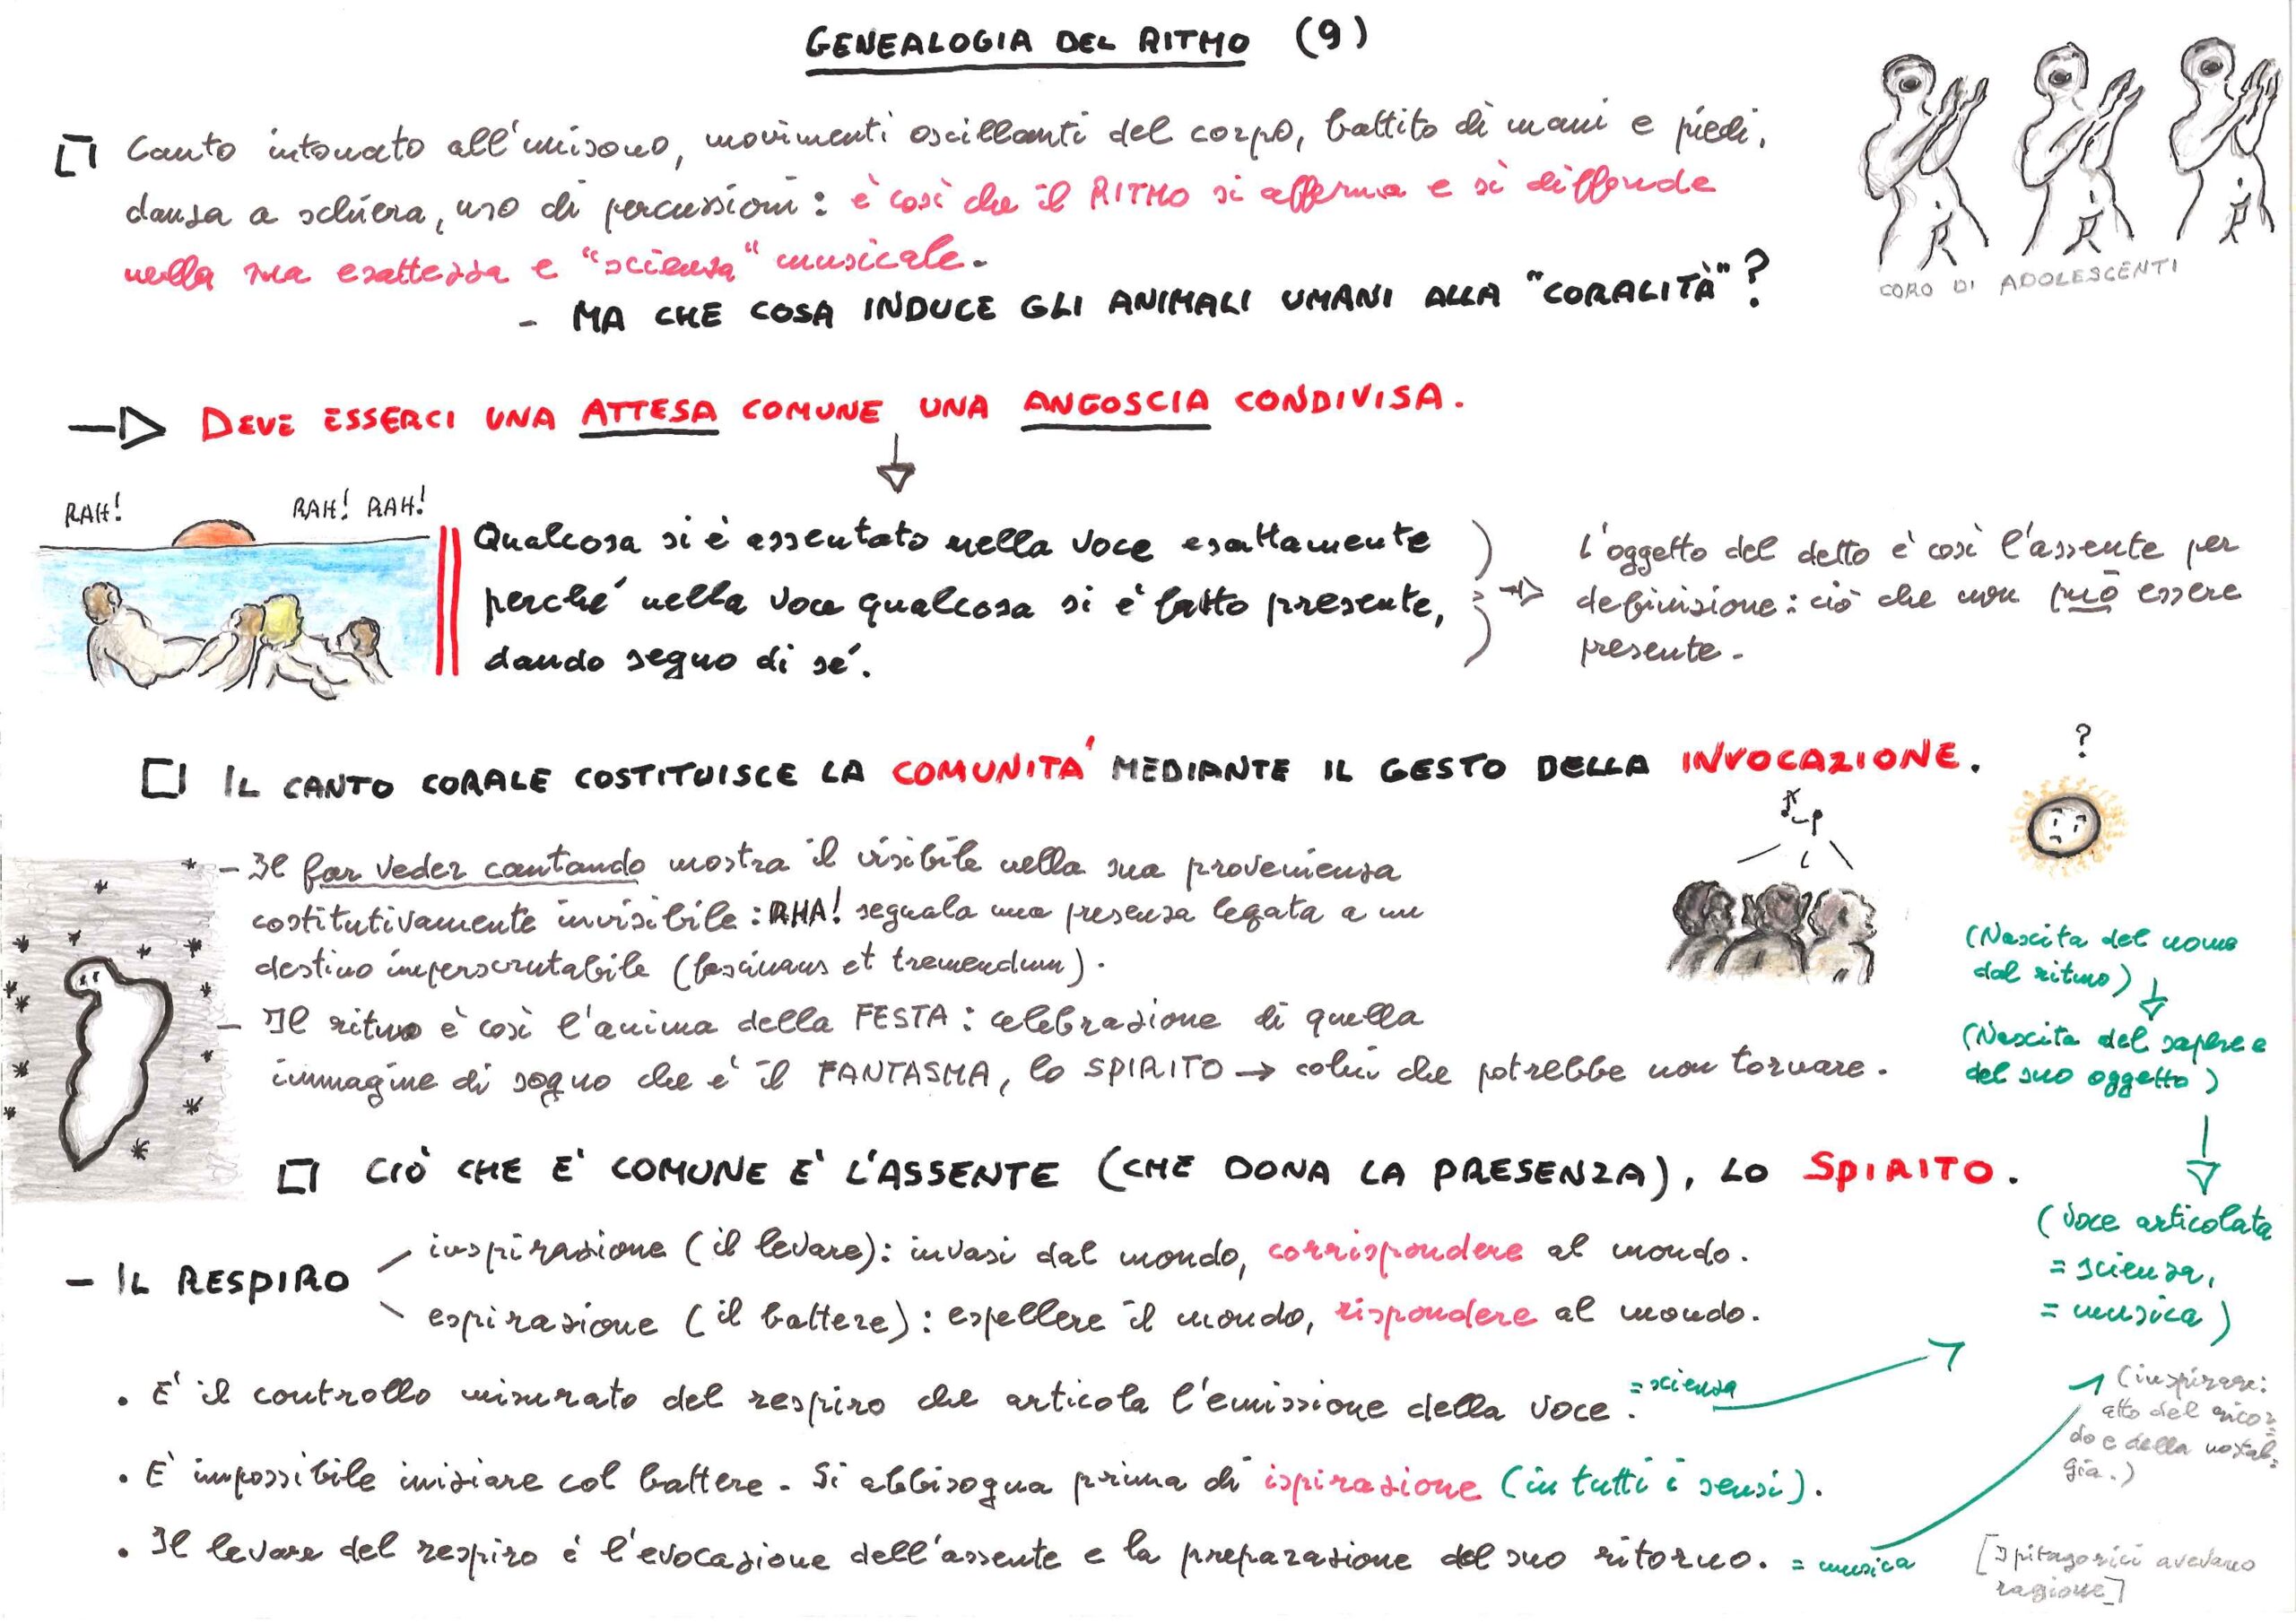 GENEALOGIA DEL RITMO (9)
Canto intonato all'unisono, movimenti oscillanti del corpo, battito di mani e piedi,
danza a schiera, uso di percussioni: è così che il RITMO si afferma e si diffonde
nella sua esattezza e "scienza" musicale.
- MA CHE COSA INDUCE GLI ANIMALI UMANI ALLA "CORALITÀ"?
CORO DI ADOLESCENTI
DEVE ESSERCI UNA ATTESA COMUNE UNA ANGOSCIA CONDIVISA.
RAH! RAH! RAH!
Qualcosa si è assentato nella voce esattamente
perché nella voce qualcosa si è fatto presente,
dando segno di sé.
L'oggetto del detto è così l'assente per
definizione: ciò che non può essere
presente.
IL CANTO CORALE COSTITUISCE LA COMUNITA' MEDIANTE IL GESTO DELLA INVOCAZIONE.
?
- Il far veder cantando mostra il visibile nella sua provenienza
costitutivamente invisibile: RHA! segnala una presenza legata a un
destino imperscrutabile (fascinans et tremendum).
- Il ritmo è così l'anima della FESTA: celebrazione di quella
immagine di sogno che è il FANTASMA, lo SPIRITO → colui che potrebbe non tornare.
(Nascita del nome
dal ritmo)
(Nascita del sapere e
del suo oggetto)
(Voce articolata
= scienza,
= musica)
CIÒ CHE E' COMUNE E' L'ASSENTE (CHE DONA LA PRESENZA), LO SPIRITO.
- IL RESPIRO
inspirazione (il levare): invasi dal mondo, corrispondere al mondo.
espirazione (il battere): espellere il mondo, rispondere al mondo.
• E' il controllo misurato del respiro che articola l'emissione della voce. = scienza
• E' impossibile iniziare col battere - Si abbisogna prima di ispirazione (in tutti i sensi).
• Il levare del respiro è l'evocazione dell'assente e la preparazione del suo ritorno. = musica
(inspirare:
atto del ricor=
do e della nostal=
gia.)
[I pitagorici avevano
ragione]